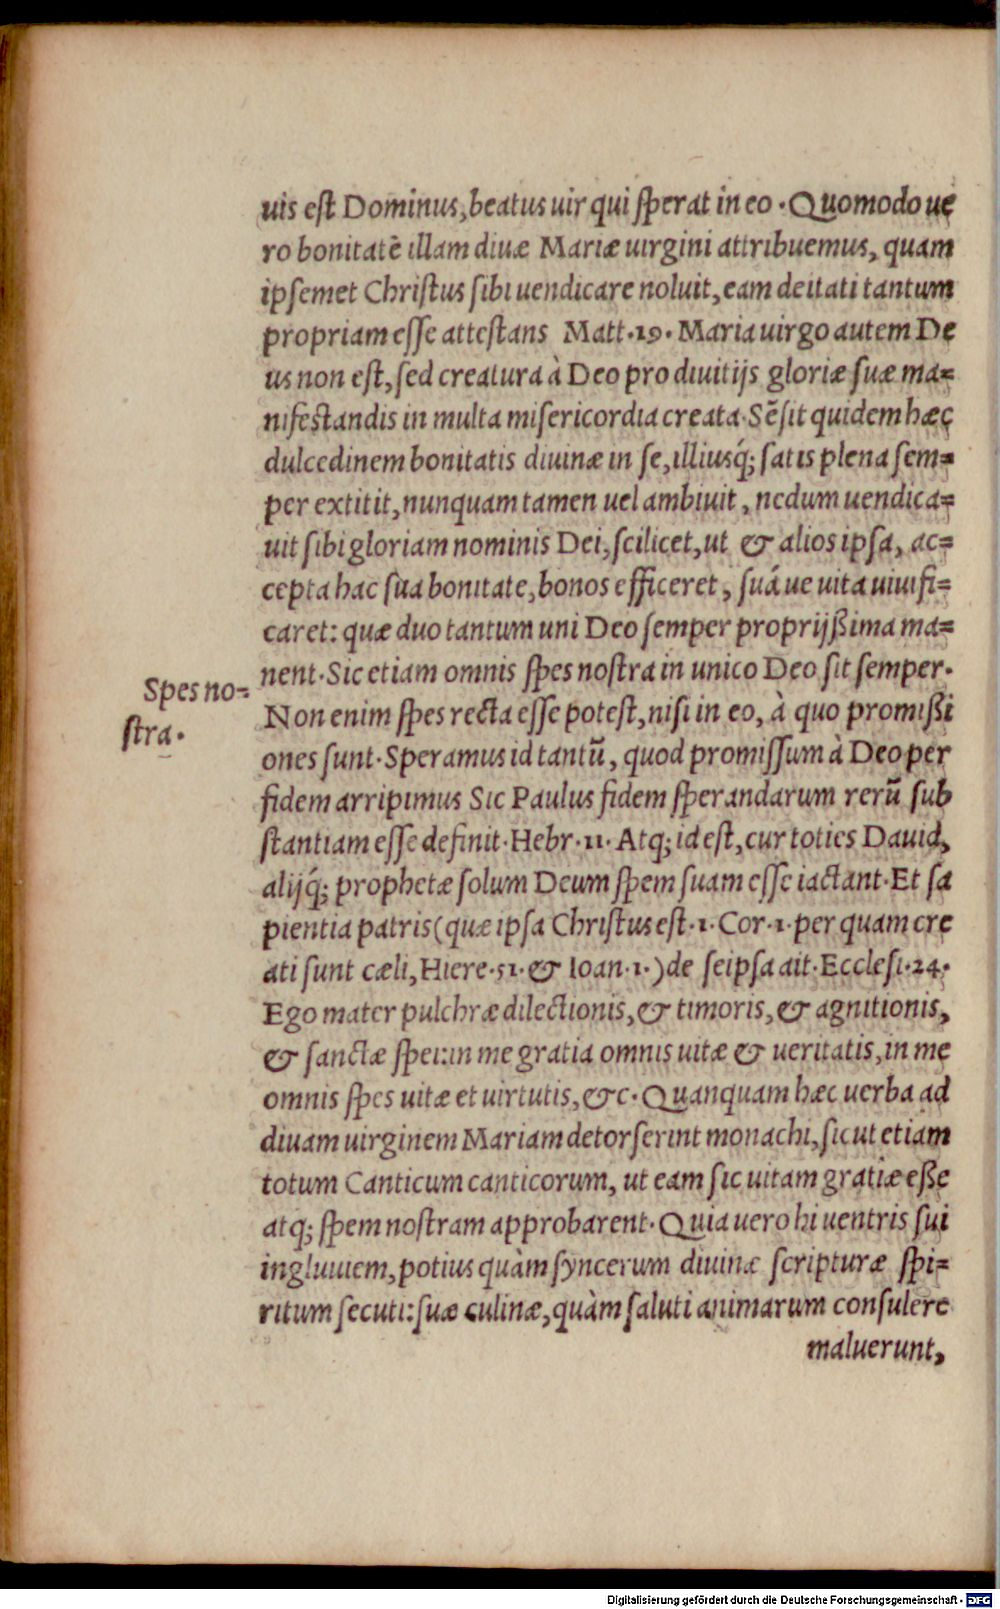 uis est Dominus, beatus uir qui sperat in eo. Quomodo ue
ro bonitatē illam diuæ Mariæ uirgini attribuemus, quam
ipsemet Christus sibi uendicare noluit, eam deitati tantum
propriam esse attestans Matt. 19. Maria uirgo autem De
us non est, sed creatura à Deo pro diuitijs gloriæ suæ ma=
nifestandis in multa misericordia creata. Sēsit quidem hæc
dulcedinem bonitatis diuinæ in se, illiusq́; satis plena sem=
per extitit, nunquam tamen uel ambiuit, nedum uendica=
uit sibi gloriam nominis Dei, scilicet, ut & alios ipsa, ac=
cepta hac sua bonitate, bonos efficeret, suáue uita uiuifi=
caret: quæ duo tantum uni Deo semper proprijßima ma=
nent. Sic etiam omnis spes nostra in unico Deo sit semper.
Spes no=
stra.
Non enim spes recta esse potest, nisi in eo, à quo promißi
ones sunt. Speramus id tantū, quod promissum à Deo per
fidem arripimus Sic Paulus fidem sperandarum rerū sub
stantiam esse definit. Hebr. 11. Atq; id est, cur toties Dauid,
alijq́; prophetæ solum Deum spem suam esse iactant. Et sa
pientia patris (quæ ipsa Christus est. 1. Cor. 1. per quam cre
ati sunt cæli, Hiere. 51. & Ioan. 1.) de seipsa ait. Ecclesi. 24.
Ego mater pulchræ dilectionis, & timoris, & agnitionis,
& sanctæ spei: in me gratia omnis uitæ & ueritatis, in me
omnis spes uitæ et uirtutis, &c. Quanquam hæc uerba ad
diuam uirginem Mariam detorserint monachi, sicut etiam
totum Canticum canticorum, ut eam sic uitam gratiæ eße
atq; spem nostram approbarent. Quia uero hi uentris sui
ingluuiem, potius quàm syncerum diuinæ scripturæ spi=
ritum secuti: suæ culinæ, quàm saluti animarum consulere
maluerunt,
Digitalisierung gefördert durch die Deutsche Forschungsgemeinschaft - DFG